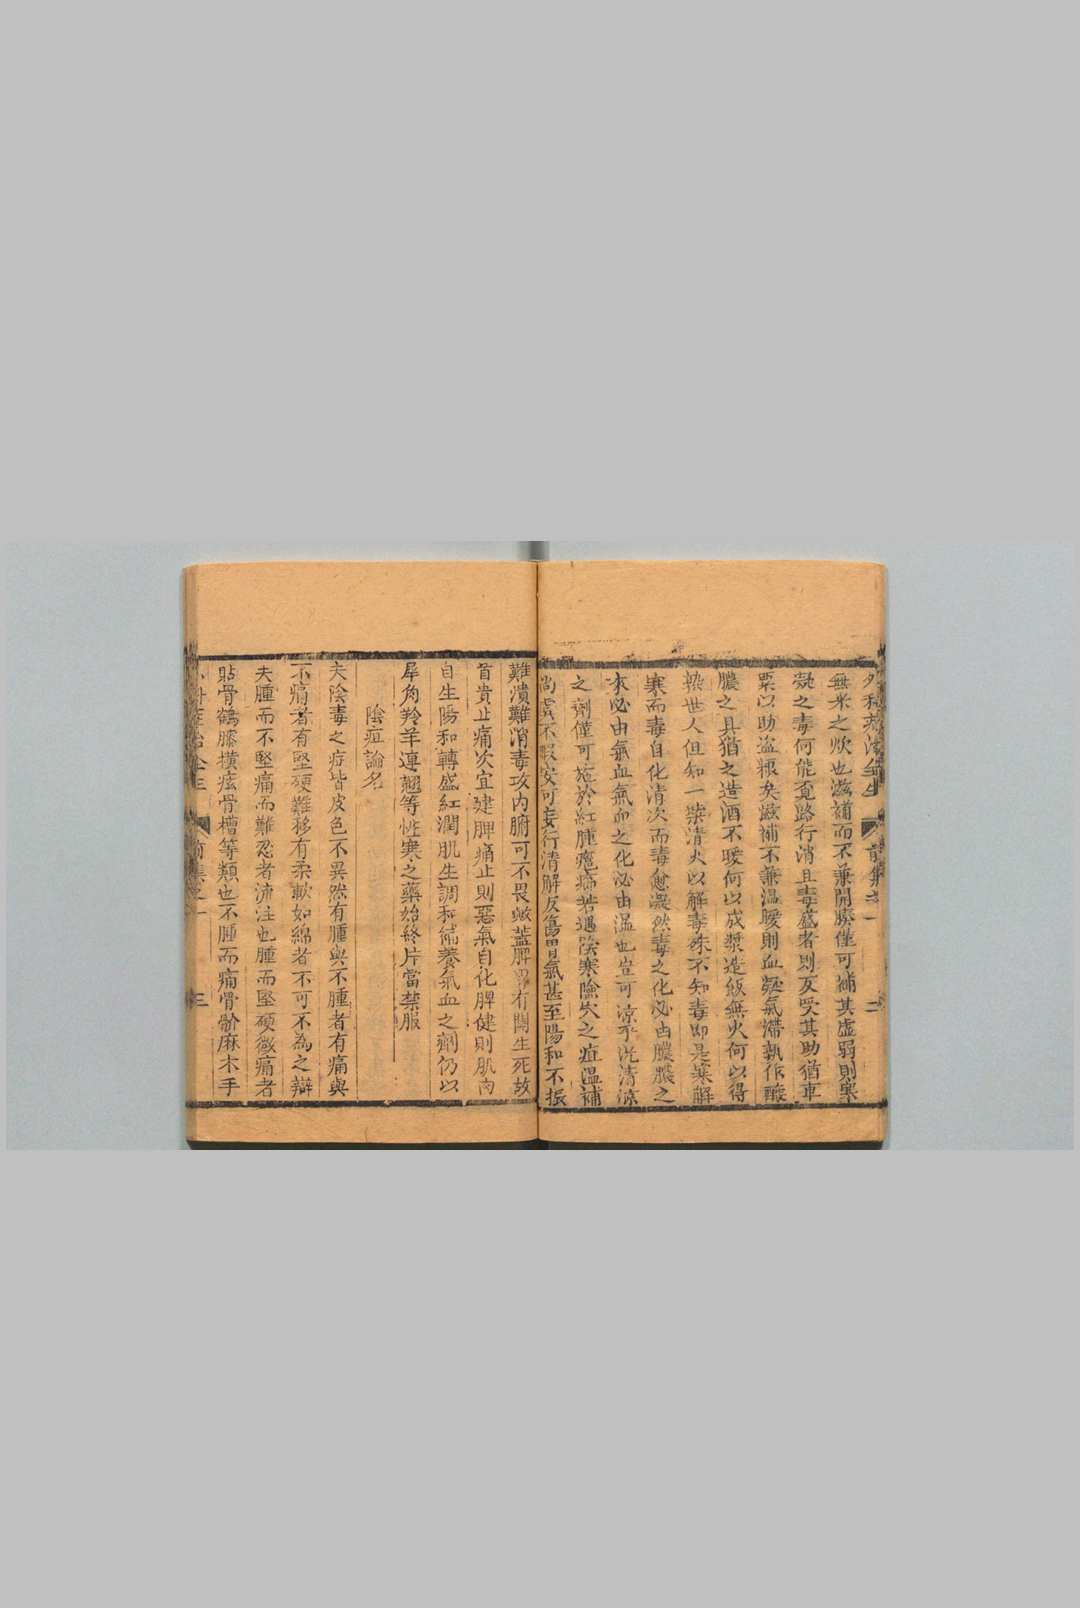 外科症治全生 前集卷一 二
無米之炊也滋補而不兼開腠僅可補其虛弱則寒
凝之毒何能覓路行消且毒盛者則反受其助猶車
粟以助盜粮矣滋補不兼溫暖則血凝氣滯孰作釀
膿之具猶之造酒不暖何以成漿造飯無火何以得
熟世人但知一槩清火以解毒殊不知毒即是寒解
寒而毒自化清火而毒愈凝然毒之化必由膿膿之
來必由氣血氣血之化必由溫也豈可涼乎况清涼
之劑僅可施於紅腫癰癤若遇陰寒險穴之疽溫補
尚虞不暇安可妄行清解反傷胃氣甚至陽和不振
難潰難消毒攻内腑可不畏歟蓋脾胃有關生死故
首貴止痛次宜建脾痛止則惡氣自化脾健則肌肉
自生陽和轉盛紅潤肌生調和能養氣血之劑仍以
犀角羚羊連翹等性寒之藥始終片當禁服
陰症論名
夫陰毒之症皆皮色不異然有腫與不腫者有痛與
不痛者有堅硬難移有柔軟如綿者不可不為之辯
夫腫而不堅痛而難忍者流注也腫而堅硬微痛者
貼骨鶴膝橫痃骨槽等類也不腫而痛骨骱麻木手
外科症治全生 前集卷一 三